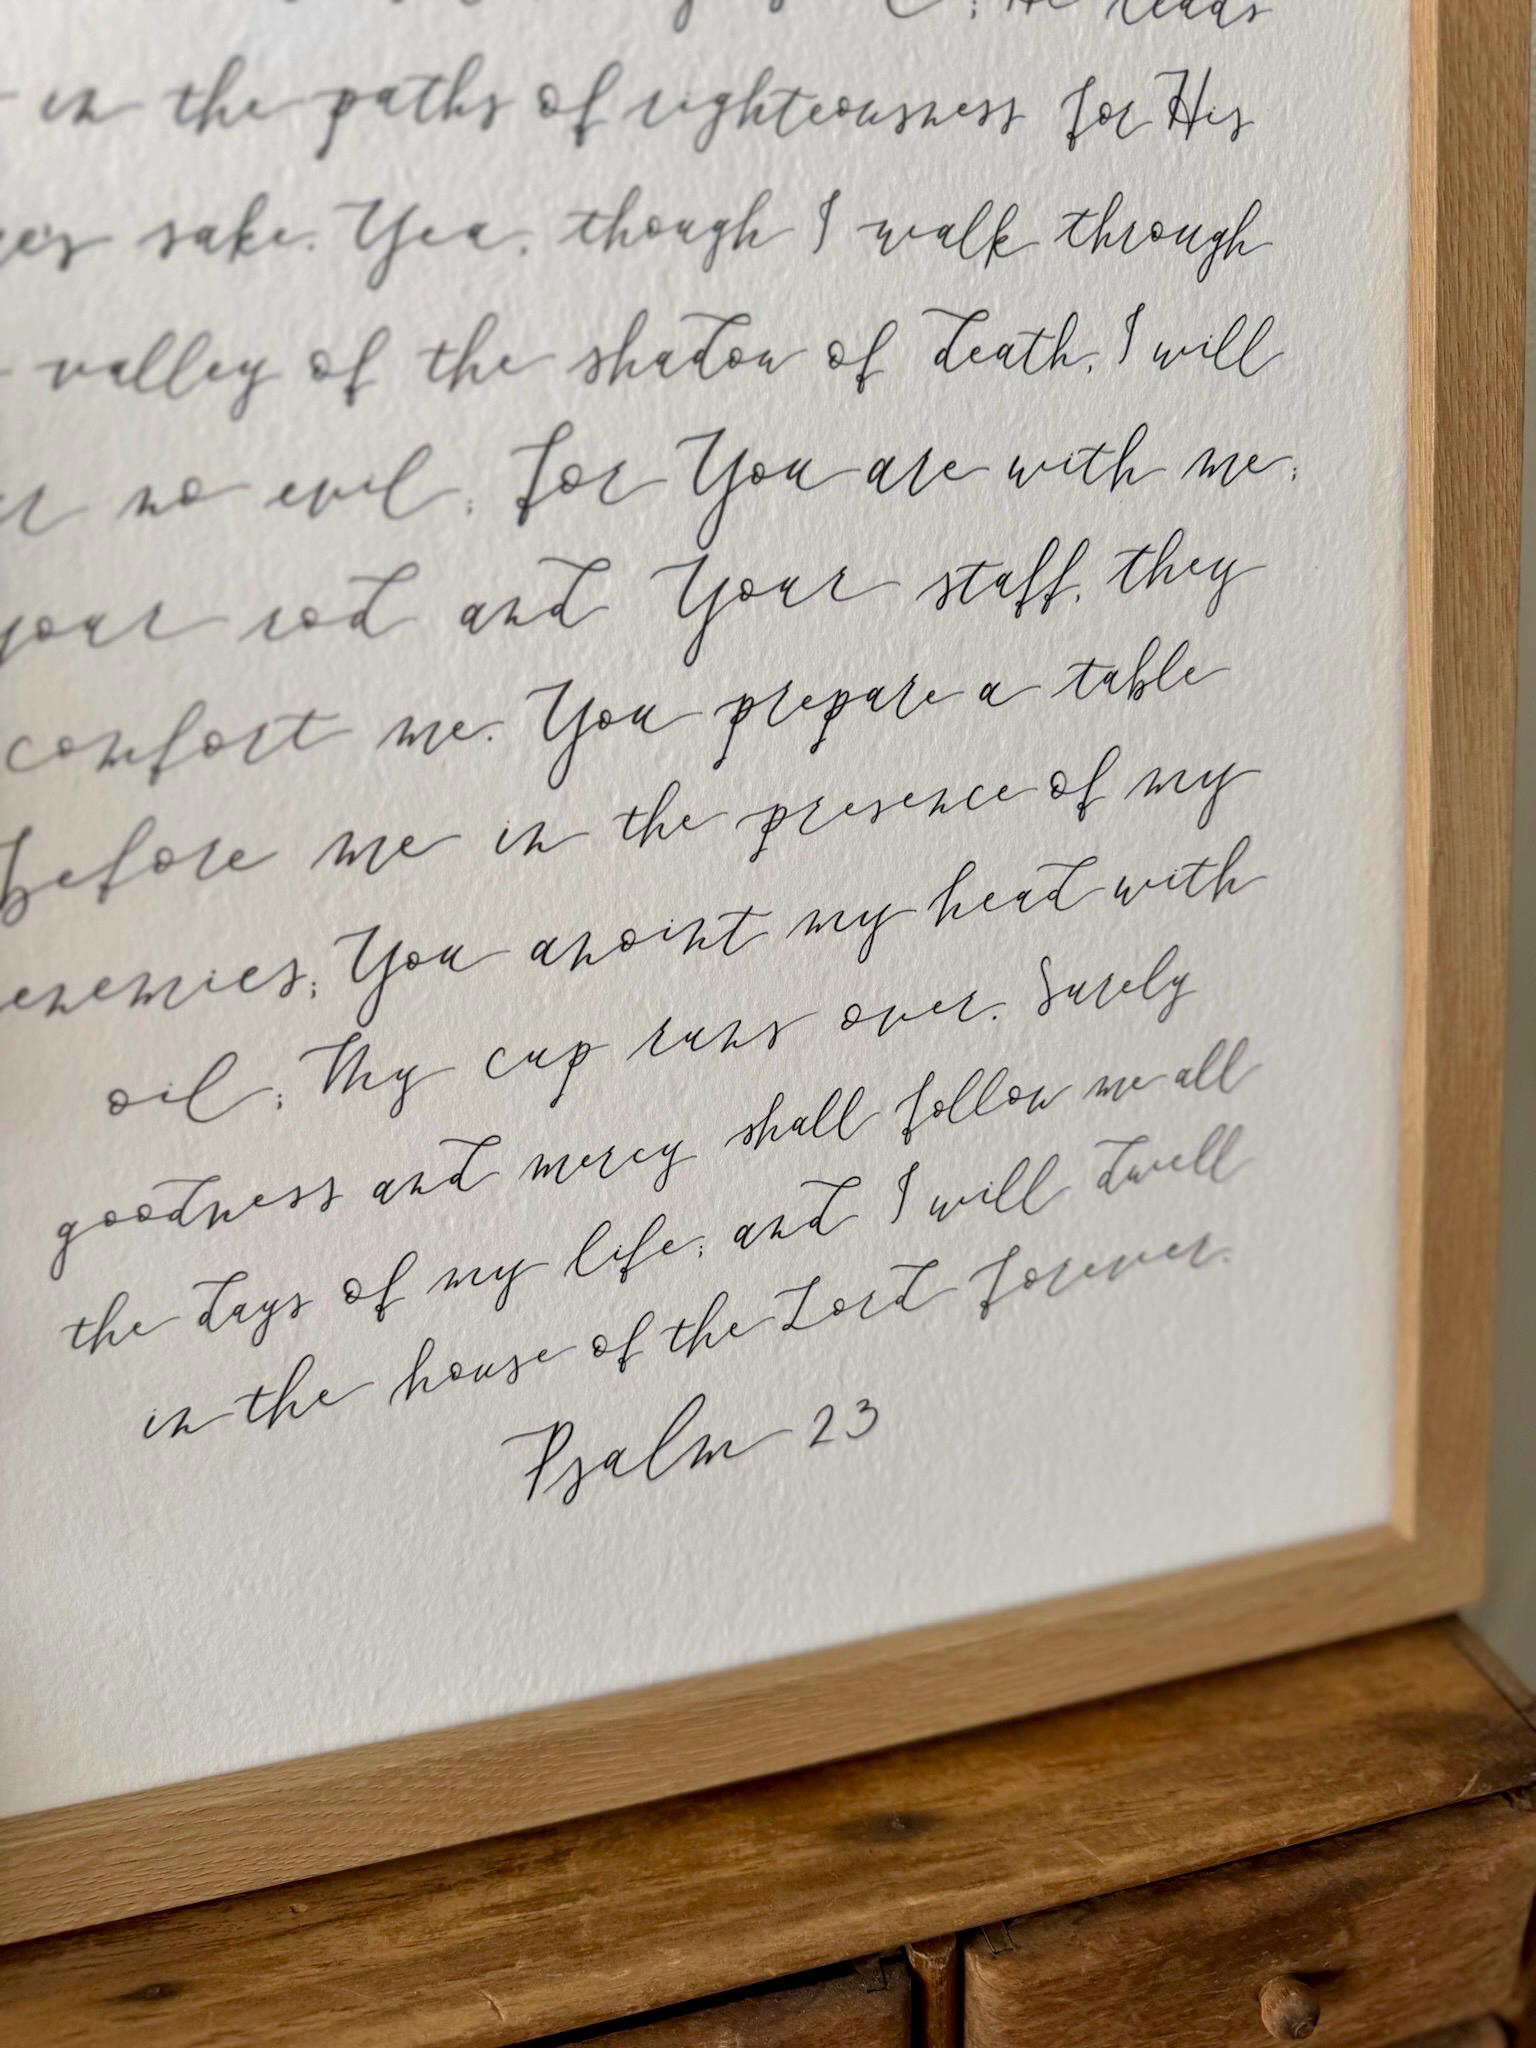 ; He leads
in the paths of righteousness for His
sake. Yea, though I walk through
valley of the shadow of death, I will
no evil; for You are with me;
Your rod and Your staff, they
comfort me. You prepare a table
before me in the presence of my
enemies; You anoint my head with
oil; My cup runs over. Surely
goodness and mercy shall follow me all
the days of my life; and I will dwell
in the house of the Lord forever.
Psalm 23